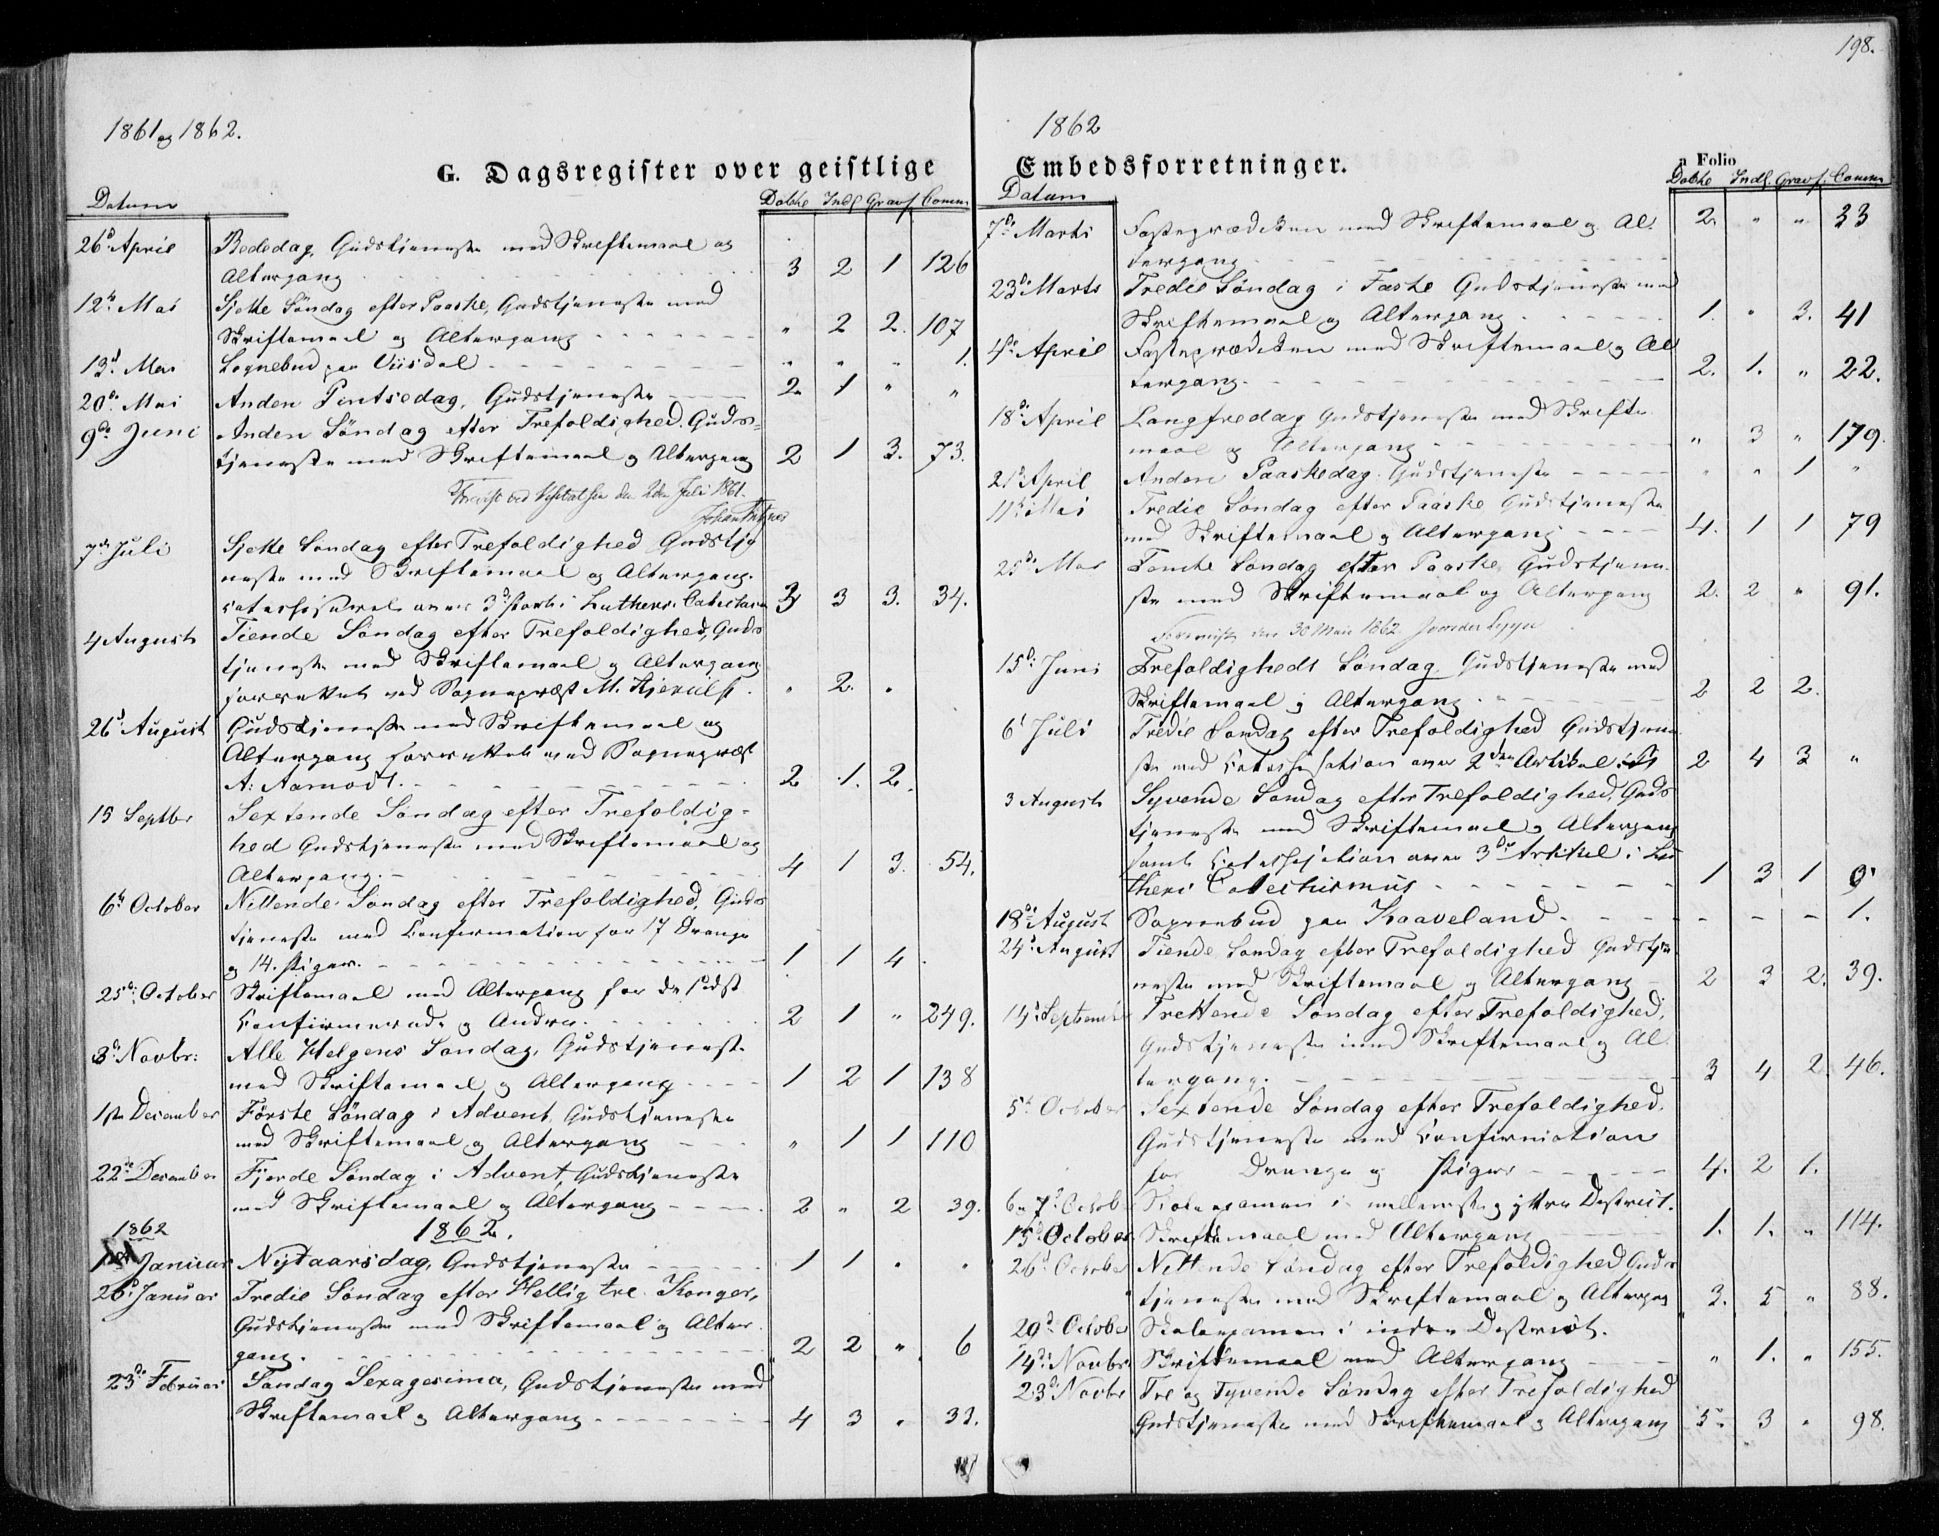 1861 og 1862.
G. Dagsregister over geistlige
Datum Dobte Indl Gravf. Comm
26d April Bededag, Gudstjeneste med Skriftemaal og
Altergang 3 2 1 126
12te Mai Sjette Søndag efter Paaske, Gudstjeneste med
Skriftemaal og Altergang " 2 2. 107
13d Mai Sognebud paa Viisdal " " " 1.
20de Mai Anden Pintsedag, Gudstjeneste 2 1 " "
9de Juni Anden Søndag efter Trefoldighed. Guds-
tjeneste med Skriftemaal og Altergang 2 1 3. 73.
Foreviist ved Visitatsen den 2den Juli 1861.
7de Juli Sjette Søndag efter Trefoldighed Gudstje
neste med Skriftemaal og Altergang.
over 3d Part i Luthers Catechism 3 3 3. 34.
4 August Tiende Søndag efter Trefoldighed, Guds
tjeneste med Skriftemaal og Altergang
forrettet ved Sognepræst M. Kjerulf. " 2. "
26d August Gudstjeneste med Skriftemaal og
Altergang forrettet ved Sognepræst
A: Aamodt. 2 1. 2.
15 Septbr Sextende Søndag efter Trefoldig-
hed Gudstjeneste med Skriftemaal og
Altergang. 4 1 3. 54.
6te October Nittende Søndag efter Trefoldighed, Guds
tjeneste med Confirmation for 17 Drenge
og 14. Piger. 1 1 4
25d October Skriftemaal med Altergang for de sidst
Confirmerede og Andre. 2 1 " 249.
3d Novbr: Alle Helgens Søndag, Gudstjeneste
med Skriftemaal og Altergang 1 2 1 138
1ste December Første Søndag i Advent, Gudstjeneste
med Skriftemaal og Altergang " 1 1 110
22de December Fjerde Søndag i Advent, Gudstjeneste
med Skriftemaal og Altergang 2 " 2 39.
1862 1862.
1ste Januar Nytaarsdag, Gudstjeneste 1 1 " "
26d Januar Tredie Søndag efter Hellig tre Konger,
Gudstjeneste med Skriftemaal og Alter
gang. 2 2 " 6
23de Februar Søndag Sexagesima, Gudstjeneste med
Skriftemaal og Altergang 4 3 "
198.
1862
Embedsforretninger.
n Folio
Datum Dobte Indl. Gravf. Comm
7de Marts Fasteprædiken med Skriftemaal og Al.
tergang 2. " " 33
23de Marts Tredie Søndag i Faste Gudstjeneste med
Skriftemaal og Altergang 1. " 3. 41
4de April Fasteprædiken med Skriftemaal og Al
tergang. 2. 1. " 22.
18de April Langfredag Gudstjeneste med Skrifte
maal og Altergang " 3 " 179.
21d April Anden Paaskedag. Gudstjeneste " " 1 "
11te Mai Tredie Søndag efter Paaske Gudstjeneste
med Skriftemaal og Altergang 4. 1 1 79
25de Mai Femte Søndag efter Paaske, Gudstjene
ste med Skriftemaal og Altergang 2. 2 " 91.
Foreviist den 30 Mai 1862
15de Juni Trefoldigheds Søndag. Gudstjeneste med
Skriftemaal og Altergang 2 2 2.
6te Juli Tredie Søndag efter Trefoldighed Gudstjene
ste med Catechisation over 2den Artikel 2 4 3 "
3 August Syvende Søndag efter Trefoldighed, Guds
tjeneste med Skriftemaal og Altergang
samt Catechisation over 3de Artikel i Lu
theri Catechismus 1 3 1 9
18de August Sognebud paa Kaaveland 1.
24d August Tiende Søndag efter Trefoldighed Gudstje
neste med Skriftemaal og Altergang 2 3 2. 39.
14d September Trettende Søndag efter Trefoldighed,
Gudstjeneste med Skriftemaal og Al.
tergang. 3 4 2. 46.
5te October Sextende Søndag efter Trefoldighed.
Gudstjeneste med Confirmation
for Drenge og Piger 4. 2 1.
6 og 7d Octob Skoleexamen i mellemste og yttre District.
15d October Skriftemaal med Altergang 1. 1. " 114.
26d October Nittende Søndag efter Trefoldighed Guds
tjeneste med Skriftemaal og Altergang 3. 5 " 88.
29d October Skoleexamen i indre District.
14de Novbr. Skriftemaal med Altergang " 1. " 155.
23d Novbr Tre og Tyvende Søndag efter Trefoldighed
Gudstjeneste med Skriftemaal og Altergang 5 3 " 98.